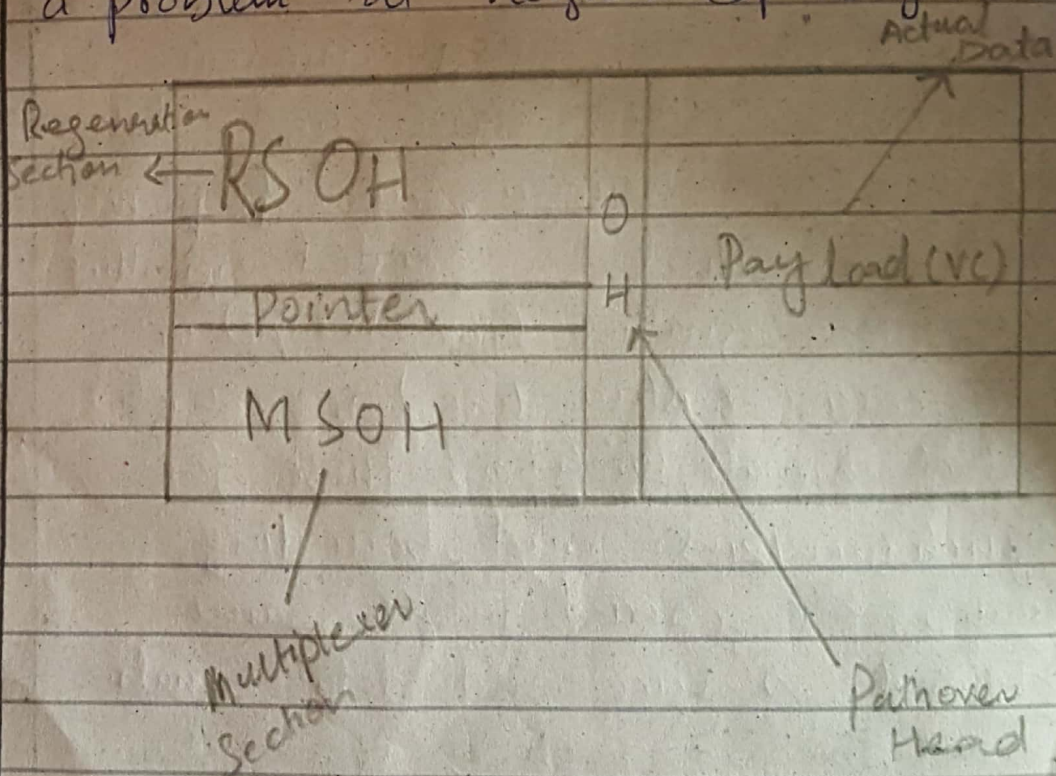 a problem
Actual
Data
Regeneration
Section
RSOH
O
H
Pay load (VC)
Pointer
MSOH
Multiplexer
Section
Pathover
Head